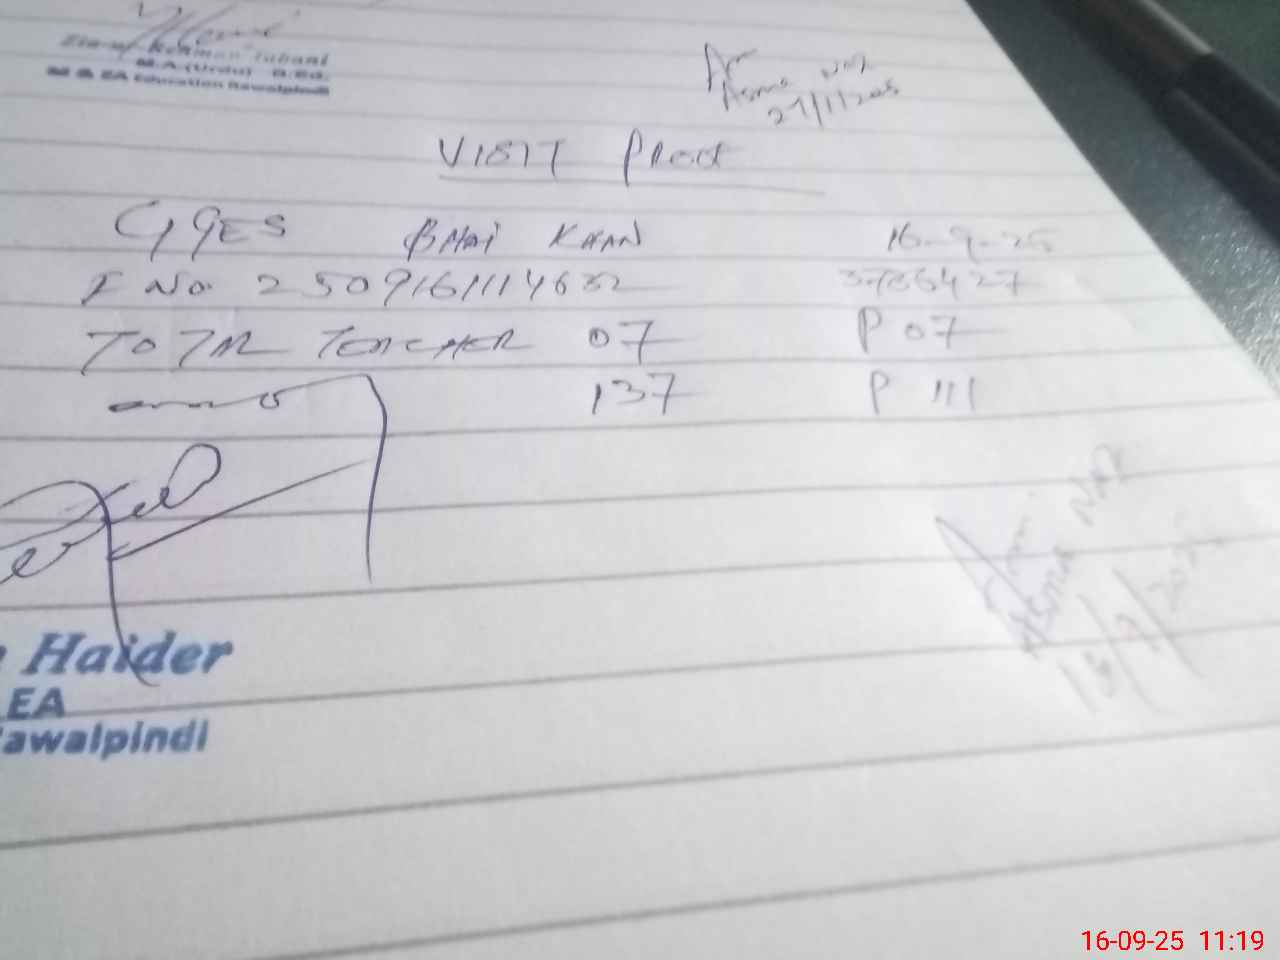 Zia-ur-Rehman Tabani
M.A (Urdu) B.Ed.
M & EA Education Rawalpindi
Asma Naz
27/1/2025
VISIT Proof
GGES BHAI KHAN 16-9-25
I No. 2509161114632 3736427
TOTAL TEACHER 07 P 07
137 P 111
Asma Naz
Haider
EA
Rawalpindi
16-09-25 11:19